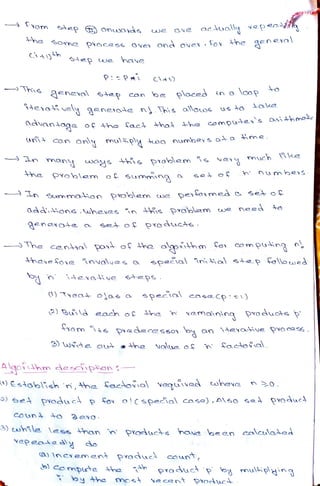 → From step ② onwards we are actually repeating
the same process over and over. for the general
(i+1)th step we have
P := P * i (i+1)
→ This general step can be placed in a loop to
iteratively generate n!. This allows us to take
advantage of the fact that the computer's arithmetic
unit can only multiply two numbers at a time.
→ In many ways this problem is very much like
the problem of summing a set of n numbers
→ In summation problem we performed a set of
additions. wheres in this problem we need to
generate a set of products.
→ The central part of the algorithm for computing n!
therefore involves a special initial step followed
by n iterative steps.
(1) Treat 0! as a special case (p:=1)
2) Build each of the n remaining products p
from its predecessor by an iterative process.
3) Write out the value of n factorial.
Algorithm description:-
1) Establish n, the factorial required where n≥0.
2) Set product p for 0! (special case). Also set product
count to zero.
3) while less than n products have been calculated
repeatedly do
a) Increment product count,
b) Compute the ith product p by multiplying
i by the most recent product.